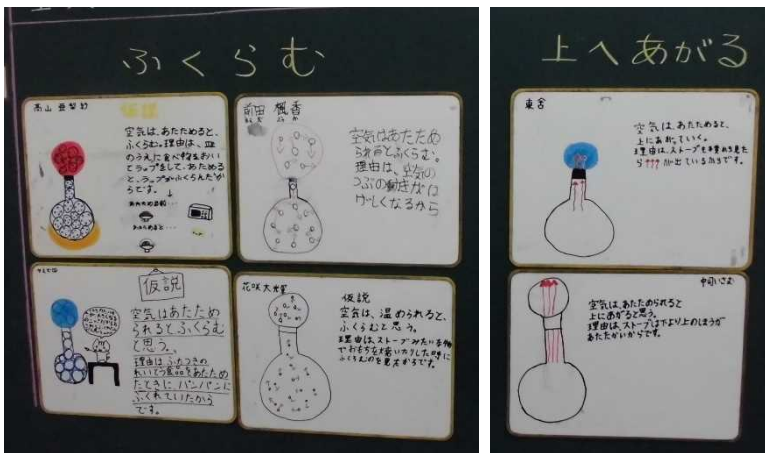 ふくらむ
仮説
空気は、あたためると、
ふくらむ。理由は、皿
のうえに食べ物をおい
てラップをして、あためる
と、ラップがふくらんだか
らです。
前田 楓香
空気はあたため
られるとふくらむ。
理由は、空気の
つぶの動きがは
げしくなるから
仮説
空気はあたため
られるとふくらむ
と思う。
理由はふたつきの
れいとう食品をあたため
たときに、パンパンに
ふくれていたから
です。
花咲大輝
仮説
空気は、温められると、
ふくらむと思う。
理由は、ストーブみたいな物
でおもちを焼いたりした時に
ふくらむのを見たからです。
上へあがる
東舎
空気は、あたためると、
上にあがっていく。
理由は、ストーブを
ら↑↑↑が出ているからです。
中司いさむ
空気は、あたためられると
上にあがると思う。
理由は、ストーブは下より上のほうが
あたたかいからです。